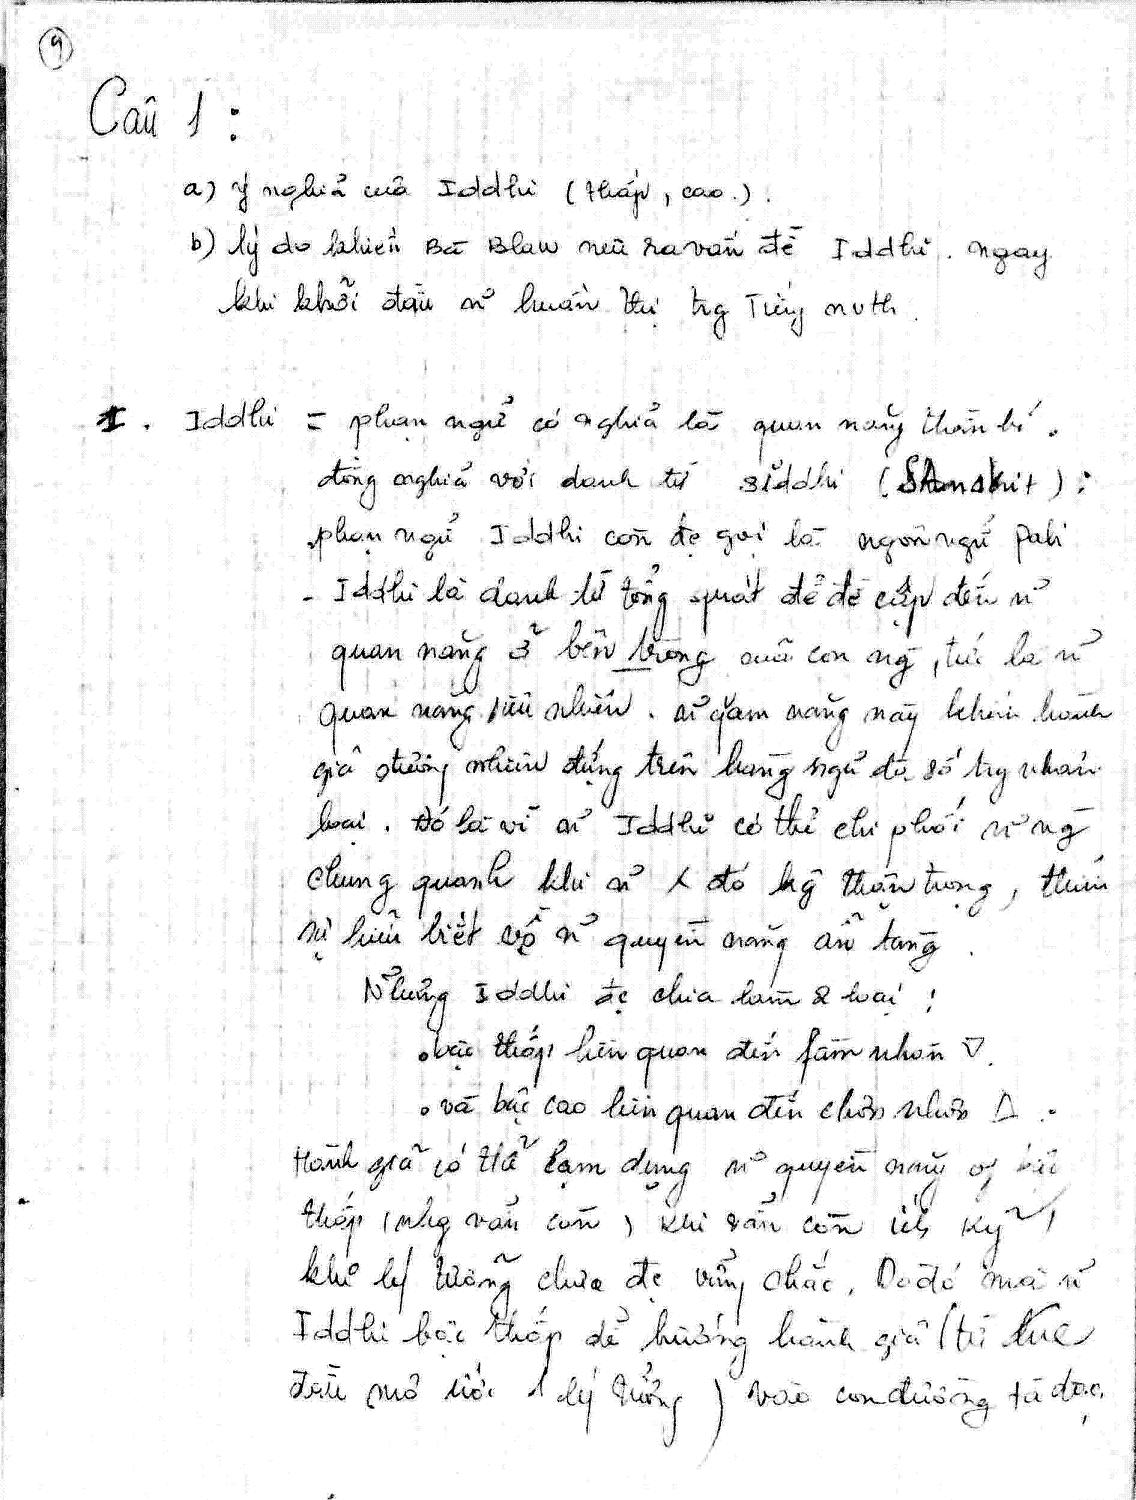 9
Câu 1 :
a) ý nghĩa của Iddhi (thấp, cao.).
b) lý do khiến Bà Blav nêu ra vấn đề Iddhi. ngay
khi khởi đầu huấn thị trg Tiếng
I. Iddhi = phạn ngữ có nghĩa là quan năng thần bí.
đồng nghĩa với danh từ siddhi (
phạn ngữ Iddhi còn đc gọi là ngôn ngữ Pali
- Iddhi là danh từ tổng quát để đề cập đến n~
quan năng ở bên trong của con ng, tức là n~
quan năng siêu nhiên. n~ năng này khiến hành
giả đương nhiên đứng trên hàng ngũ đa số trg nhân
loại. Đó là vì n~ Iddhi có thể chi phối n~ ng
chung quanh khi n~ đó kg thận trọng, thiếu
sự hiểu biết về n~ quyền năng ẩn tàng.
Những Iddhi đc chia làm 2 loại :
. bậc thấp liên quan đến fàm nhân ▽.
. và bậc cao liên quan đến chơn nhơn △.
Hành giả có thể lạm dụng n~ quyền năng bậc
thấp (nhg vẫn còn) khi vẫn còn ích kỷ,
khi lý tưởng chưa đc vững chắc. Do đó mà n~
Iddhi bậc thấp dễ hướng hành giả (từ lúc
đầu mơ ước 1 lý tưởng) vào con đường tà đạo,